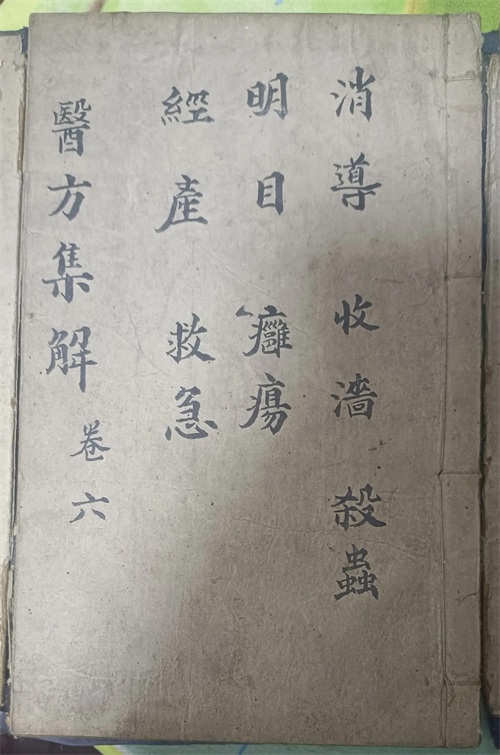 消導 收濇 殺蟲
明目 癰瘍
經產 救急
醫方集解 卷六